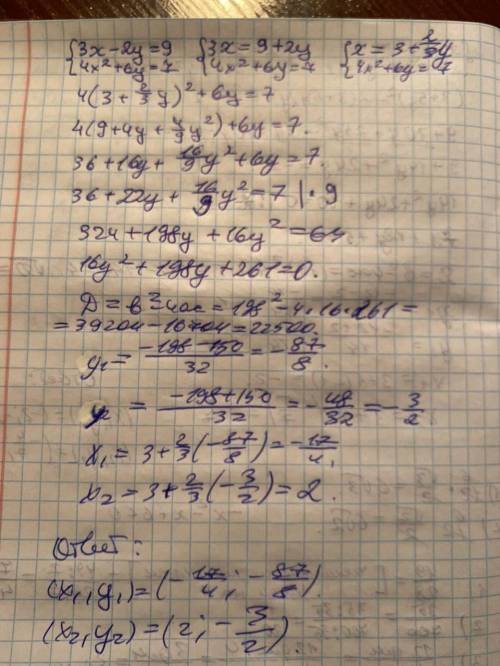 {3x-2y=9 {3x=9+2y {x=3+2/3y
{4x²+6y=7 {4x²+6y=7 {4x²+6y=7
4(3+2/3y)²+6y=7
4(9+4y+4/9y²)+6y=7.
36+16y+16/9y²+6y=7.
36+22y+16/9y²=7 |·9
324+198y+16y²=64
16y²+198y+261=0.
D=в²-4ас=198²-4·16·261=
=39204-16704=22500.
y₁=(-198-150)/32=-87/8.
y₂=(-198+150)/32=-48/32=-3/2
x₁=3+2/3(-87/8)=-17/4,
x₂=3+2/3(-3/2)=2.
Ответ:
(x₁,y₁)=(-17/4; -87/8)
(x₂,y₂)=(2; -3/2)